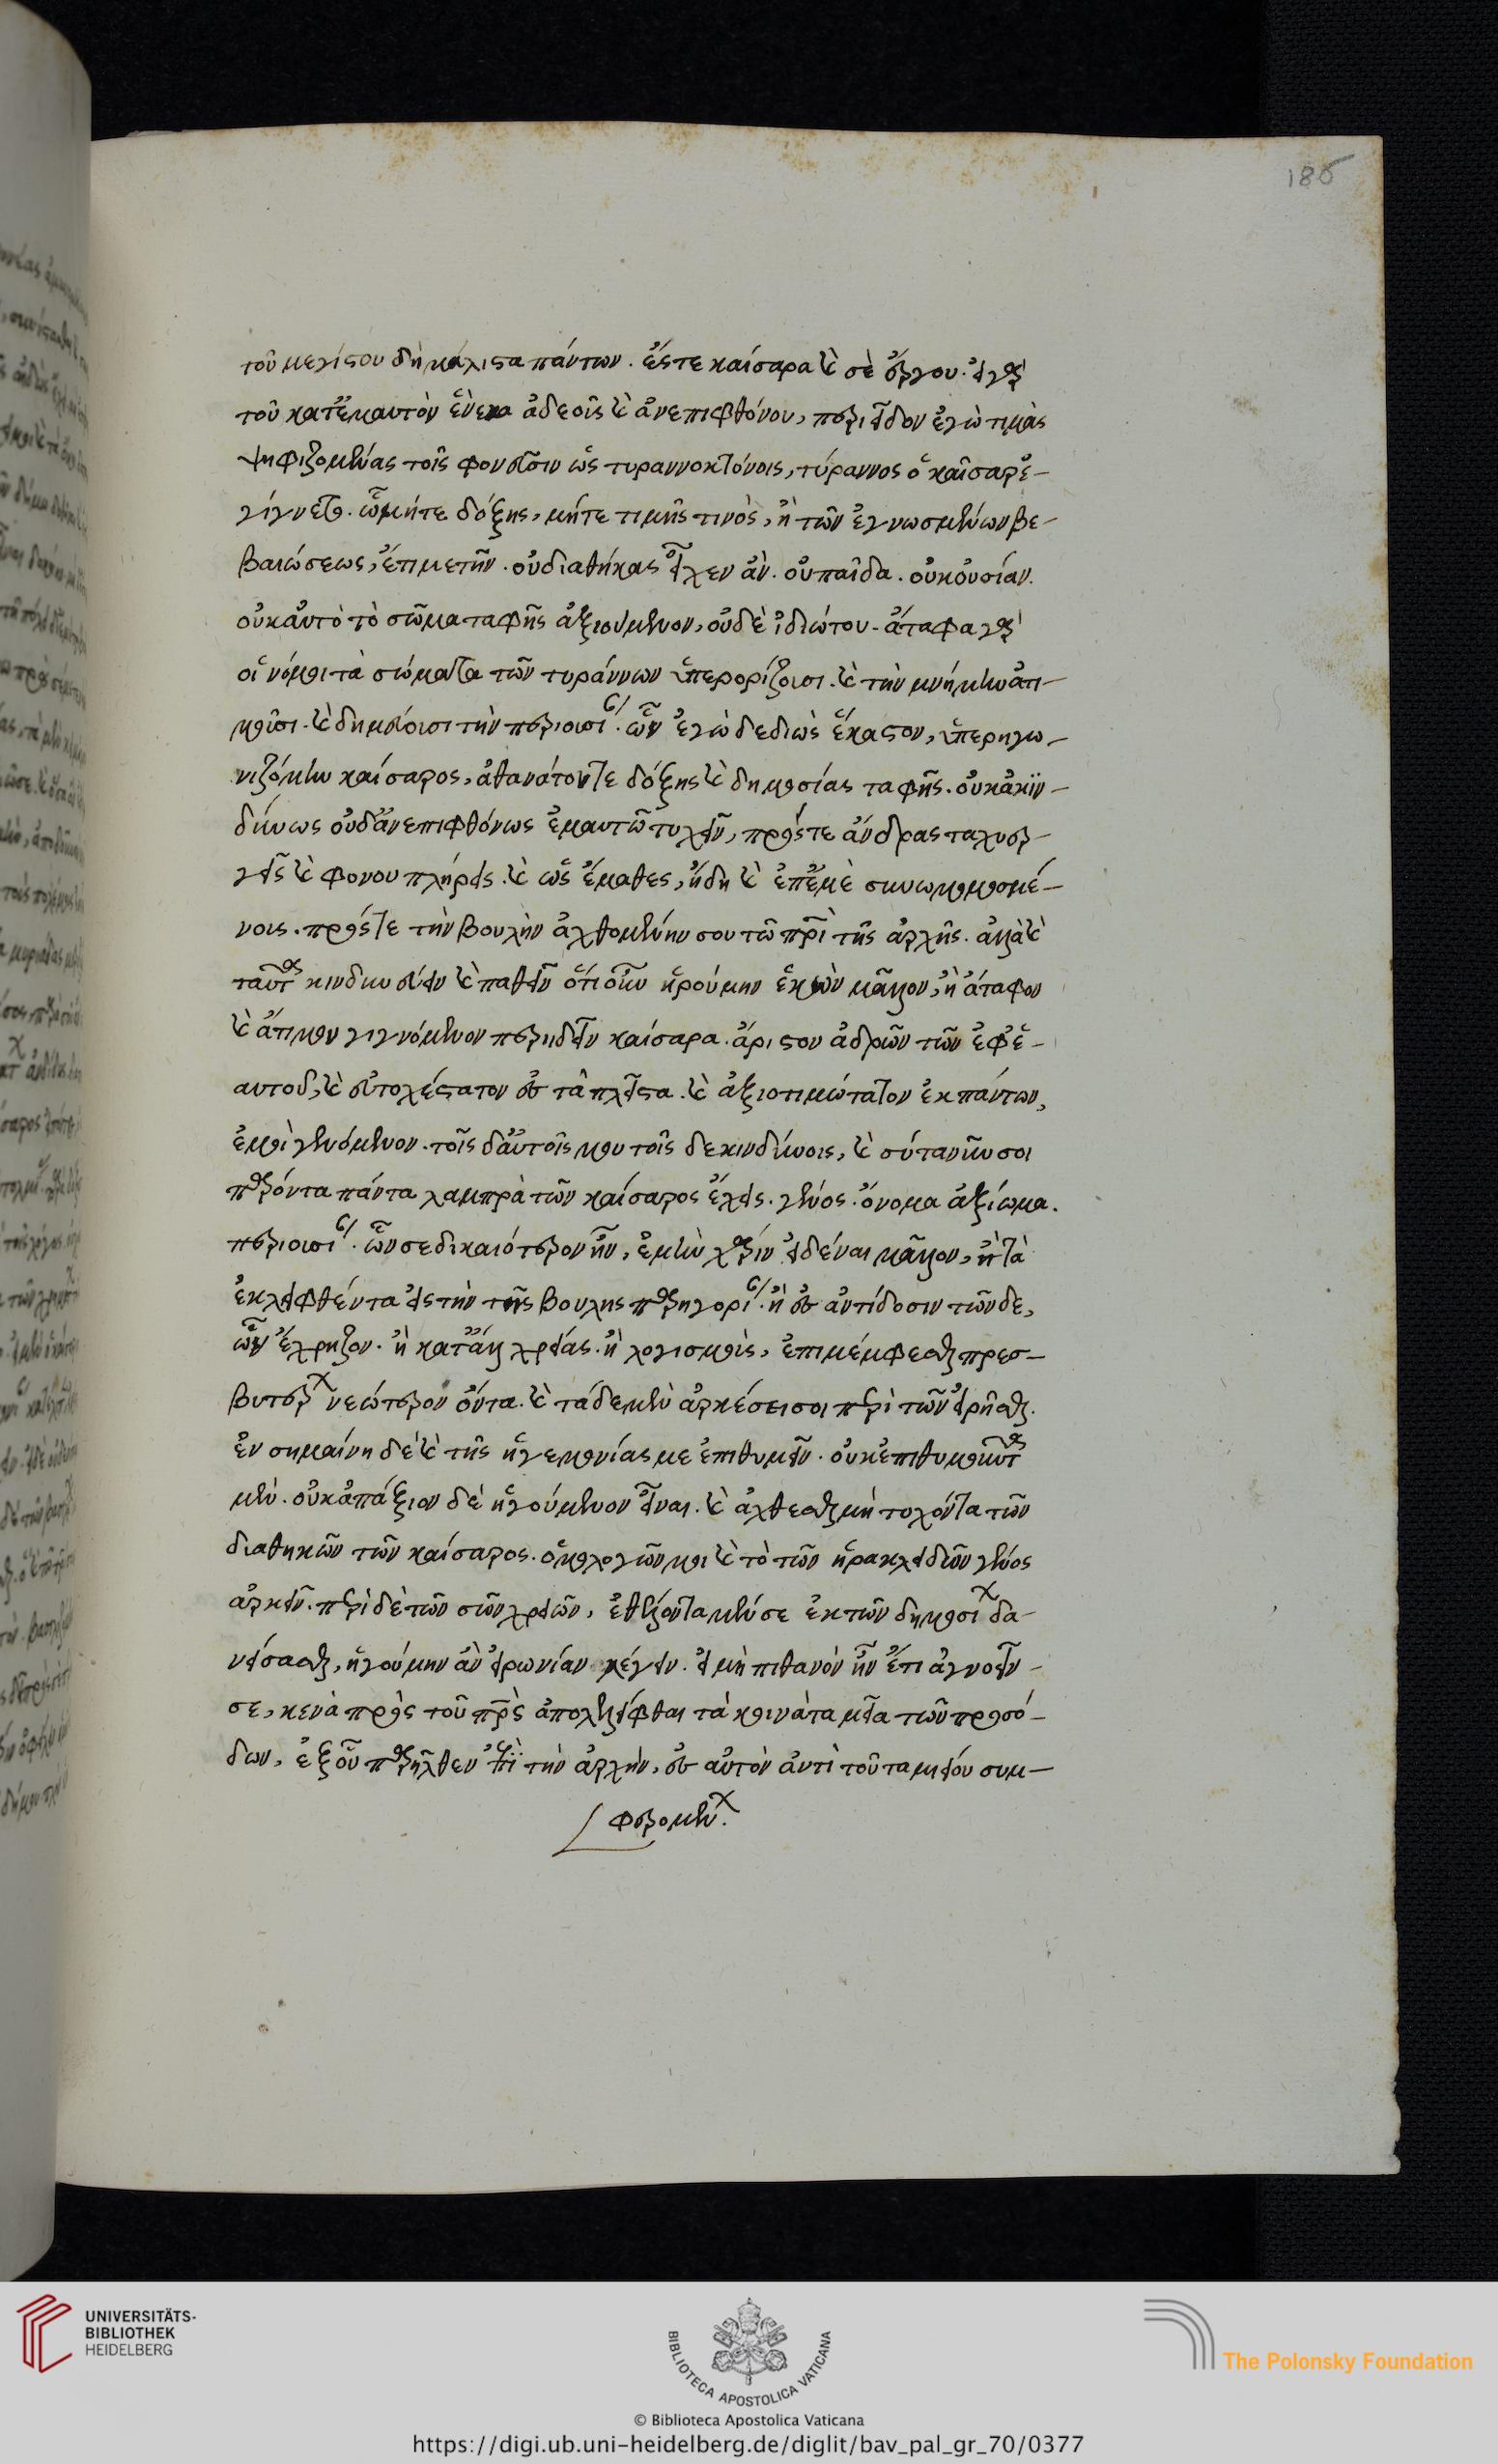 186
τοῦ μεγίστου δὴ μάλιστα πάντων. ἔς τε καίσαρα καὶ σὲ ἔργου. εἰ γὰρ
τοῦ κατ' ἐμαυτὸν ἕνεκα ἀδεοῦς καὶ ἀνεπιφθόνου, περιεῖδον ἐγὼ τιμὰς
ψηφιζομένας τοῖς φονεῦσιν ὡς τυραννοκτόνοις, τύραννος ὁ καῖσαρ ἐ-
γίγνετο. ᾧ μήτε δόξης, μήτε τιμῆς τινὸς, ἢ τῶν ἐγνωσμένων βε-
βαιώσεως, ἔτι μετῆν. οὐ διαθήκας εἶχεν ἄν. οὐ παῖδα. οὐκ οὐσίαν.
οὐκ αὐτὸ τὸ σῶμα ταφῆς ἀξιούμενον, οὐδὲ ἰδιώτου. ἄταφα γὰρ
οἱ νόμοι τὰ σώματα τῶν τυράννων ὑπερορίζουσι. καὶ τὴν μνήμην ἀτι-
μοῦσι. καὶ δημεύουσι τὴν περιουσίαν. ὧν ἐγὼ δεδιὼς ἕκαστον, ὑπερηγω-
νιζόμην καίσαρος, ἀθανάτου τε δόξης καὶ δημοσίας ταφῆς. οὐκ ἀκϊν-
δύνως οὐδ' ἀνεπιφθόνως ἐμαυτῶ τυχεῖν, πρός τε ἄνδρας ταχυερ-
γεῖς καὶ φόνου πλήρεις. καὶ ὡς ἔμαθες, ἤδη καὶ ἐπ' ἐμὲ συνωμοσμέ-
νοις. πρός τε τὴν βουλὴν ἀχθομένην σου τῶ πατρὶ τῆς ἀρχῆς. ἀλλὰ καὶ
ταῦτα κινδυνεύειν καὶ παθεῖν ὅτι οὖν ἡρούμην ἑκὼν μᾶλλον, ἢ ἄταφον
καὶ ἄτιμον γιγνόμενον περιιδεῖν καίσαρα. ἄριστον ἀνδρῶν τῶν ἐφ' ἑ-
αυτοῦ, καὶ εὐτυχέστατον ἐς τὰ πλεῖστα. καὶ ἀξιοτιμώτατον ἐκ πάντων,
ἐμοὶ γενόμενον. τοῖς δ' αὐτοῖς μου τοῖσδε κινδύνοις, καὶ σὺ τὰ νῦν σοι
παρόντα πάντα λαμπρὰ τῶν καίσαρος ἔχεις. γένος. ὄνομα ἀξίωμα.
περιουσίαν. ὧν σε δικαιότερον ἦν, ἐμὲν χάριν εἰδέναι μᾶλλον, ἢ τὰ
ἐκλειφθέντα εἰς τὴν τῆς βουλῆς παρηγορίαν. ἢ ἐς ἀντίδοσιν τῶνδε,
ὧν ἔχρηζον. ἢ κατ' ἄλλας χρείας. ἢ λογισμοὺς, ἐπιμέμφεσθαι πρεσ-
βυτέρω νεώτερον ὄντα. καὶ τάδε μὲν ἀρκέσει σοι περὶ τῶνδε εἰρῆσθαι.
ἐν σημαίνη δὲ καὶ τῆς ἡγεμονίας με ἐπιθυμεῖν. οὐκ ἐπιθυμοῦντα
μέν. οὐκ ἀπάξιον δὲ ἡγούμενον εἶναι. καὶ ἄχθεσθαι μὴ τυχόντα τῶν
διαθηκῶν τῶν καίσαρος. ὁμολογῶν μοι καὶ τὸ τῶν ἡρακλειδῶν γένος
ἀρκεῖν. περὶ δὲ τῶν σῶν χρειῶν, ἐθέλοντα μέν σε ἐκ τῶν δημοσίων δα-
νείσασθαι, ἡγούμην ἂν εἰρωνείαν λέγειν. εἰ μὴ πιθανὸν ἦν ἔτι ἀγνοεῖν
σε, κενὰ πρὸς τοῦ πατρὸς ἀπολελεῖφθαι τὰ κοινὰ ταμεῖα τῶν προσό-
δων, ἐξ οὗ παρῆλθεν ἐπὶ τὴν ἀρχὴν, ἐς αὐτὸν ἀντὶ τοῦ ταμιείου συμ-
φερομένων.
UNIVERSITÄTS-
BIBLIOTHEK
HEIDELBERG
BIBLIOTECA APOSTOLICA VATICANA
The Polonsky Foundation
© Biblioteca Apostolica Vaticana
https://digi.ub.uni-heidelberg.de/diglit/bav_pal_gr_70/0377